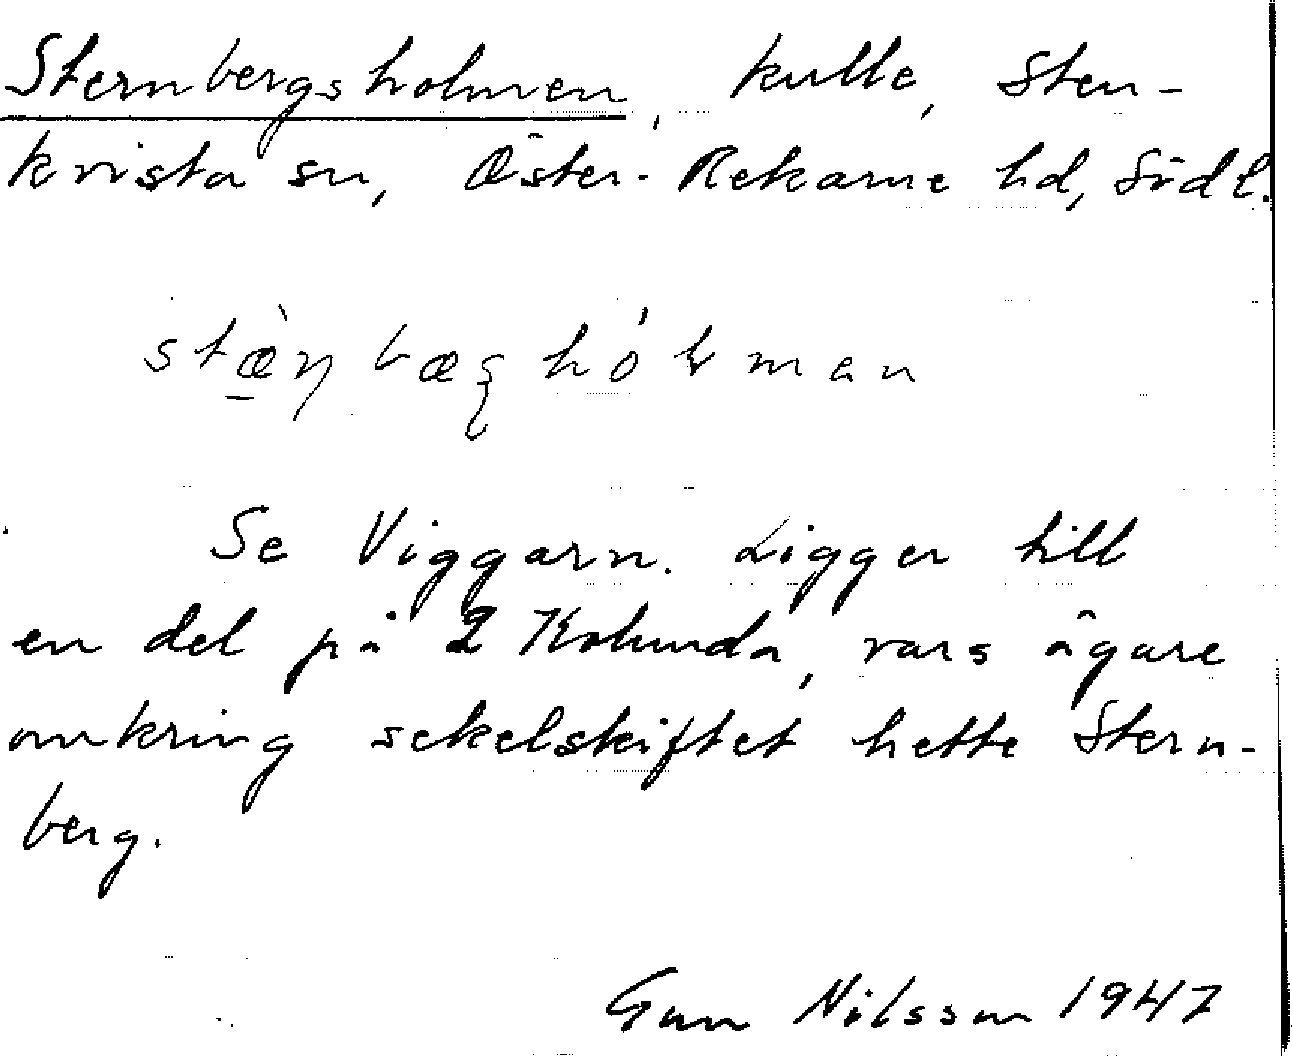 Sternbergsholmen, kulle, Sten-
kvista sn, Öster-Rekarne hd, Södl.
Se Viggarn. Ligger till
en del på 2 Kolunda, vars ägare
omkring sekelskiftet hette Stern-
berg.
Gun Nilsson 1947